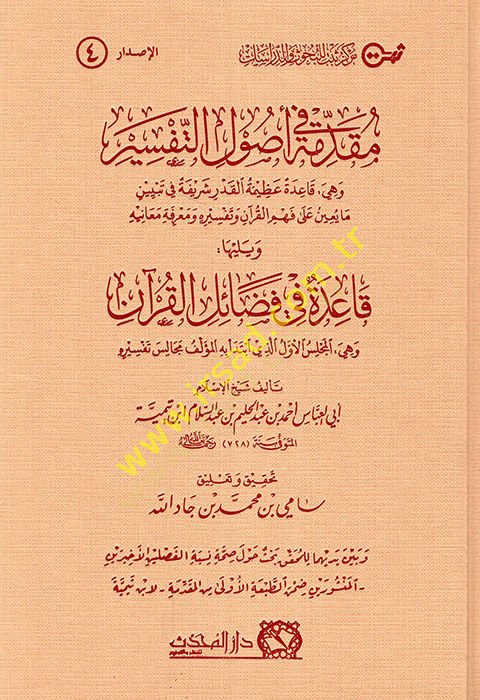 مركز ثبت للبحوث والدراسات
الإصدار ٤
مُقَدِّمَة فِي أُصُولِ التَّفْسِيرِ
وَهِيَ: قَاعِدَة عَظِيمَةُ القَدْرِ شَرِيفَةٌ فِي تَبْيِينِ
مَا يُعِينُ عَلَى فَهْمِ القُرْآنِ وَتَفْسِيرِهِ وَمَعْرِفَةِ مَعَانِيهِ
وَيَلِيْهَا:
قَاعِدَةٌ فِي فَضَائِلِ القُرْآنِ
وَهِيَ: المَجْلِسُ الأَوَّلُ الَّذِي ابْتَدَأَ بِهِ المُؤَلِّفُ مَجَالِسَ تَفْسِيرِهِ
تَأليفُ شَيْخِ الإِسْلَام
أبي العبَّاس أحمد بن عبد الحليم بن عبد السَّلام ابن تيميَّة
المتوفى سنة (٧٢٨) رحمه الله
تحقيق وتعليق
سامي بن محمد بن جاد الله
وَبَيْنَ يَدَيْهِما لِلمُحَقِّقِ بَحْثٌ حَوْلَ صِحَّةِ نِسْبَةِ الفَصْلَيْنِ الأَخِيرَيْنِ
- المَنْشُورَيْنِ ضِمْنَ الطَّبْعَةِ الأُوْلَى مِنَ المُقَدِّمَةِ - لِابْنِ تَيْمِيَّةَ
دار المحدث
للنشر والتوزيع
www.irsad.com.tr